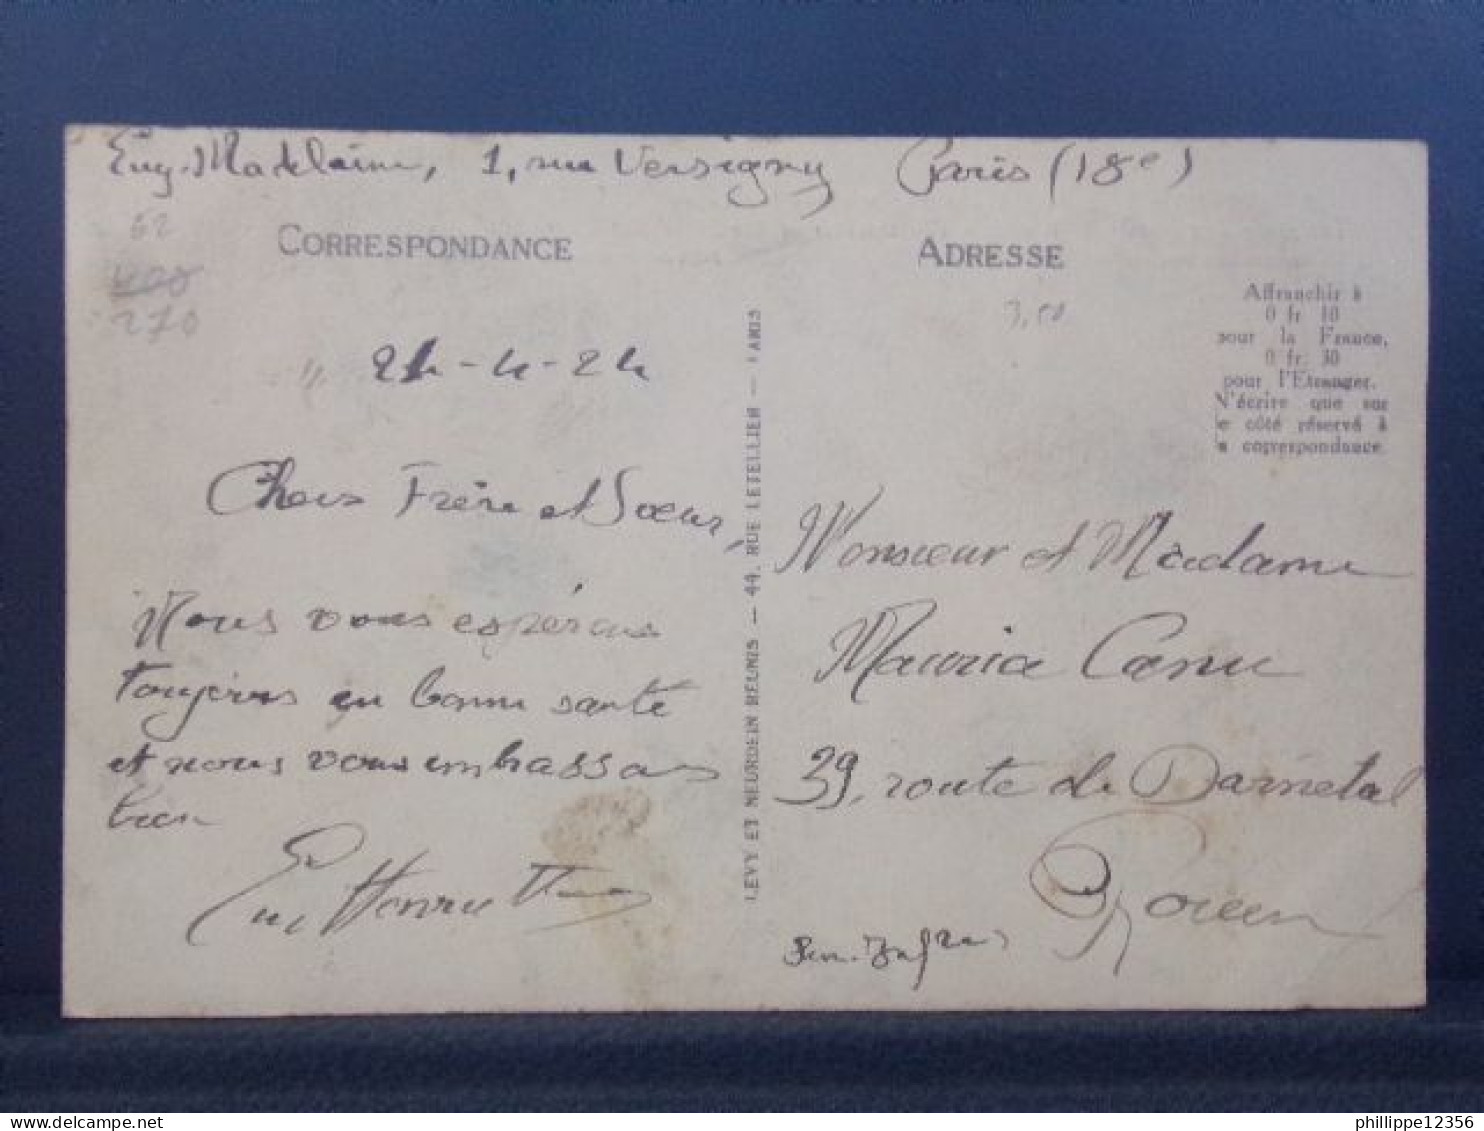 Eug. Madelaine, 1, rue Versigny Paris (18e)
62
400
270
CORRESPONDANCE
ADRESSE
3,50
Affranchir à
0 fr 10
pour la France,
0 fr. 30
pour l'Etranger.
N'écrire que sur
le côté réservé à
la correspondance.
24-4-24
Chers Frère et Soeur,
Nous vous espérons
toujours en bonne santé
et nous vous embrassons
bien
Eug Henriette
LEVY ET NEURDEIN RÉUNIS — 44, RUE LETELLIER — PARIS
Monsieur et Madame
Maurice Canu
39, route de Darnetal
Rouen
Sein-Infre
philippe12356